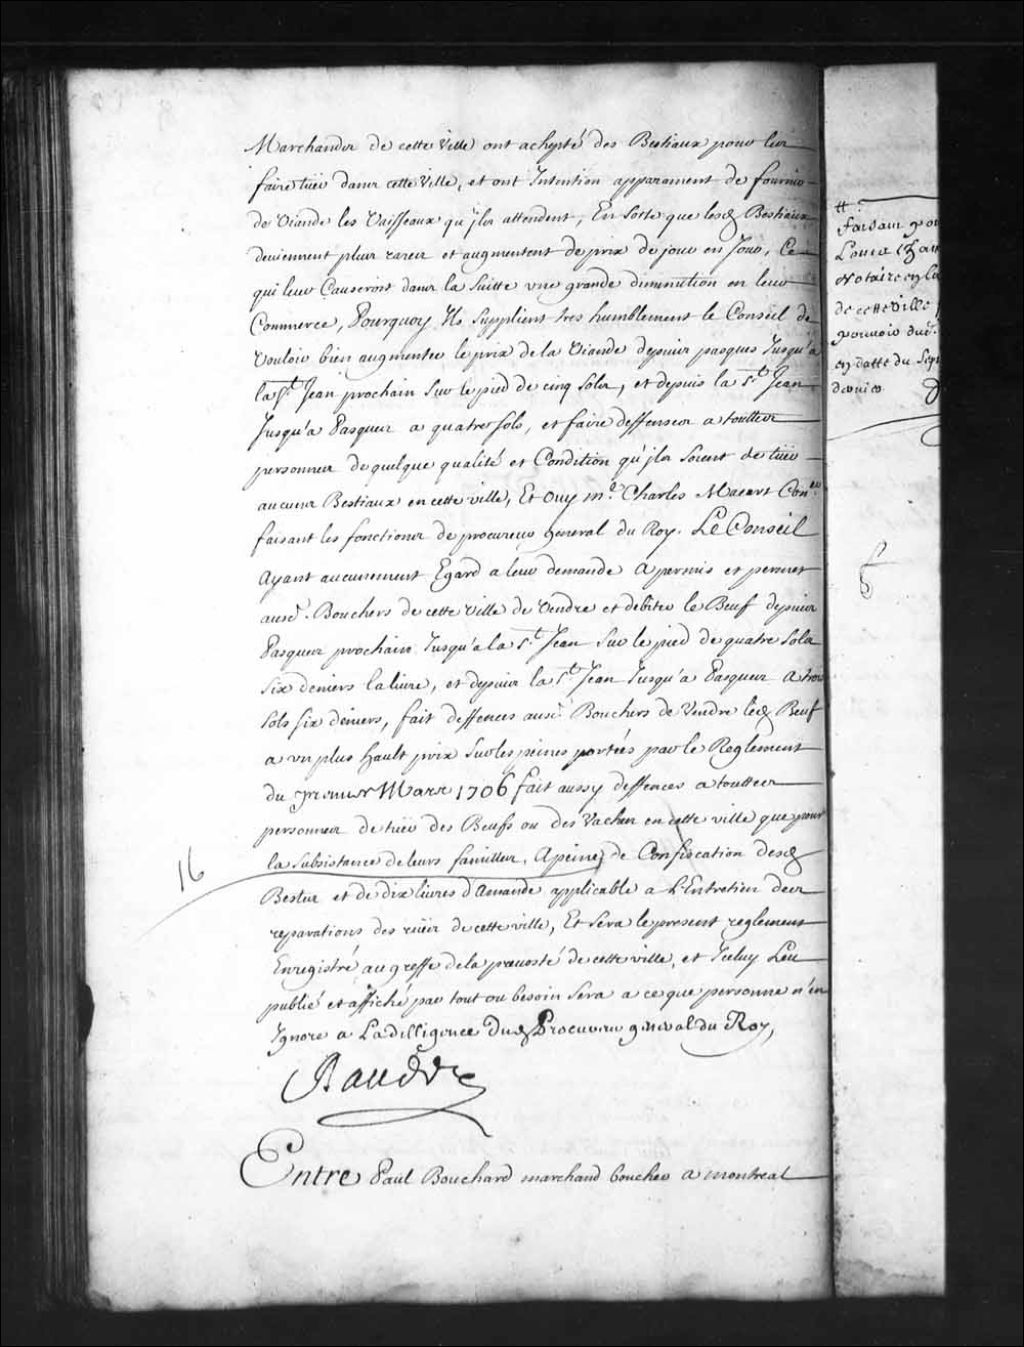 Marchands de cette Ville ont achepté des Bestiaux pour les
faire tuer dans cette Ville, et ont Intention apparament de fournir
de Viande les Vaisseaux qu'jls attendent, En sorte que lesd Bestiaux
deviennent plus rares et augmentent de prix de jour en Jour, Ce
qui leur Causeroit dans la Suitte une grande diminution en leur
Commerce, Pourquoy Ils Supplient tres humblement le Conseil de
Vouloir bien augmenter le prix de la Viande depuis pasques Jusqu'a
la St Jean prochain Sur le pied de cinq Sols, et depuis la St Jean
Jusqu'a Pasques a quatre sols, et faire deffenses a touttes
personnes de quelque qualité et Condition qu'jls soient de tuer
aucuns Bestiaux en cette ville, Et Ouy me Charles Macart Coner
faisant les fonctions de procureur general du Roy. Le Conseil
Ayant aucunement Egard a leur demande a permis et permet
ausd. Bouchers de cette ville de Vendre et debiter le Beuf depuis
Pasques prochain Jusqu'a la St Jean Sur le pied de quatre Sols
Six deniers la livre, et depuis la St Jean Jusqu'a Pasques a trois
sols six deniers, fait deffences ausd. Bouchers de Vendre led Beuf
a un plus hault prix Sur les peines portées par le Reglement
du premier Mars 1706 fait aussy deffences a touttes
personnes de tuer des Beufs ou des Vaches en cette ville que pour
la subsistance de leurs familles, A peine de Confiscation desd
16
Bestes et de dix livres d'Amande applicable a L'Entretien des
reparations des rües de cette ville, Et sera le present reglement
Enregistré au greffe de la prevosté de cette ville, et Iceluy Leu
publié et affiché par tout ou besoin sera a ce que personne n'en
Ignore a La dilligence dud Procureur general du Roy,
Raudot
Entre Paul Bouchard marchand boucher a montreal
#.
faisant
Louis
Notaire en la
de cette Ville
pouvoir
en datte du Sept
dernier